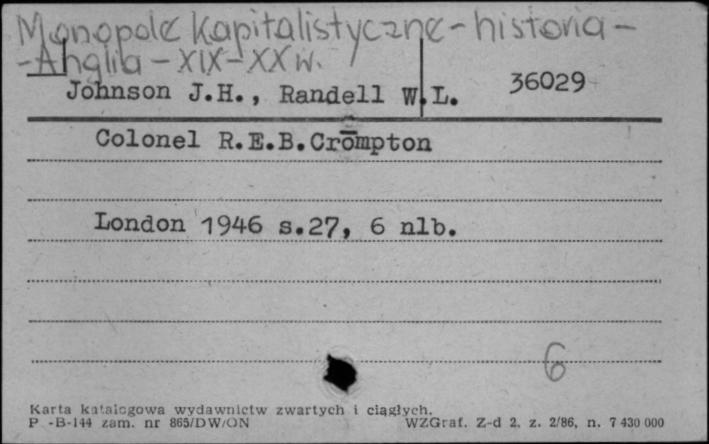 Monopole kapitalistyczne - historia -
- Anglia - XIX - XX w.
Johnson J.H., Randell W.L. 36029
Colonel R.E.B.Crompton
London 1946 s.27, 6 nlb.
6
Karta katalogowa wydawnictw zwartych i ciągłych.
P -B-144 zam. nr 865/DW/ON WZGraf. Z-d 2, z. 2/86, n. 7 430 000